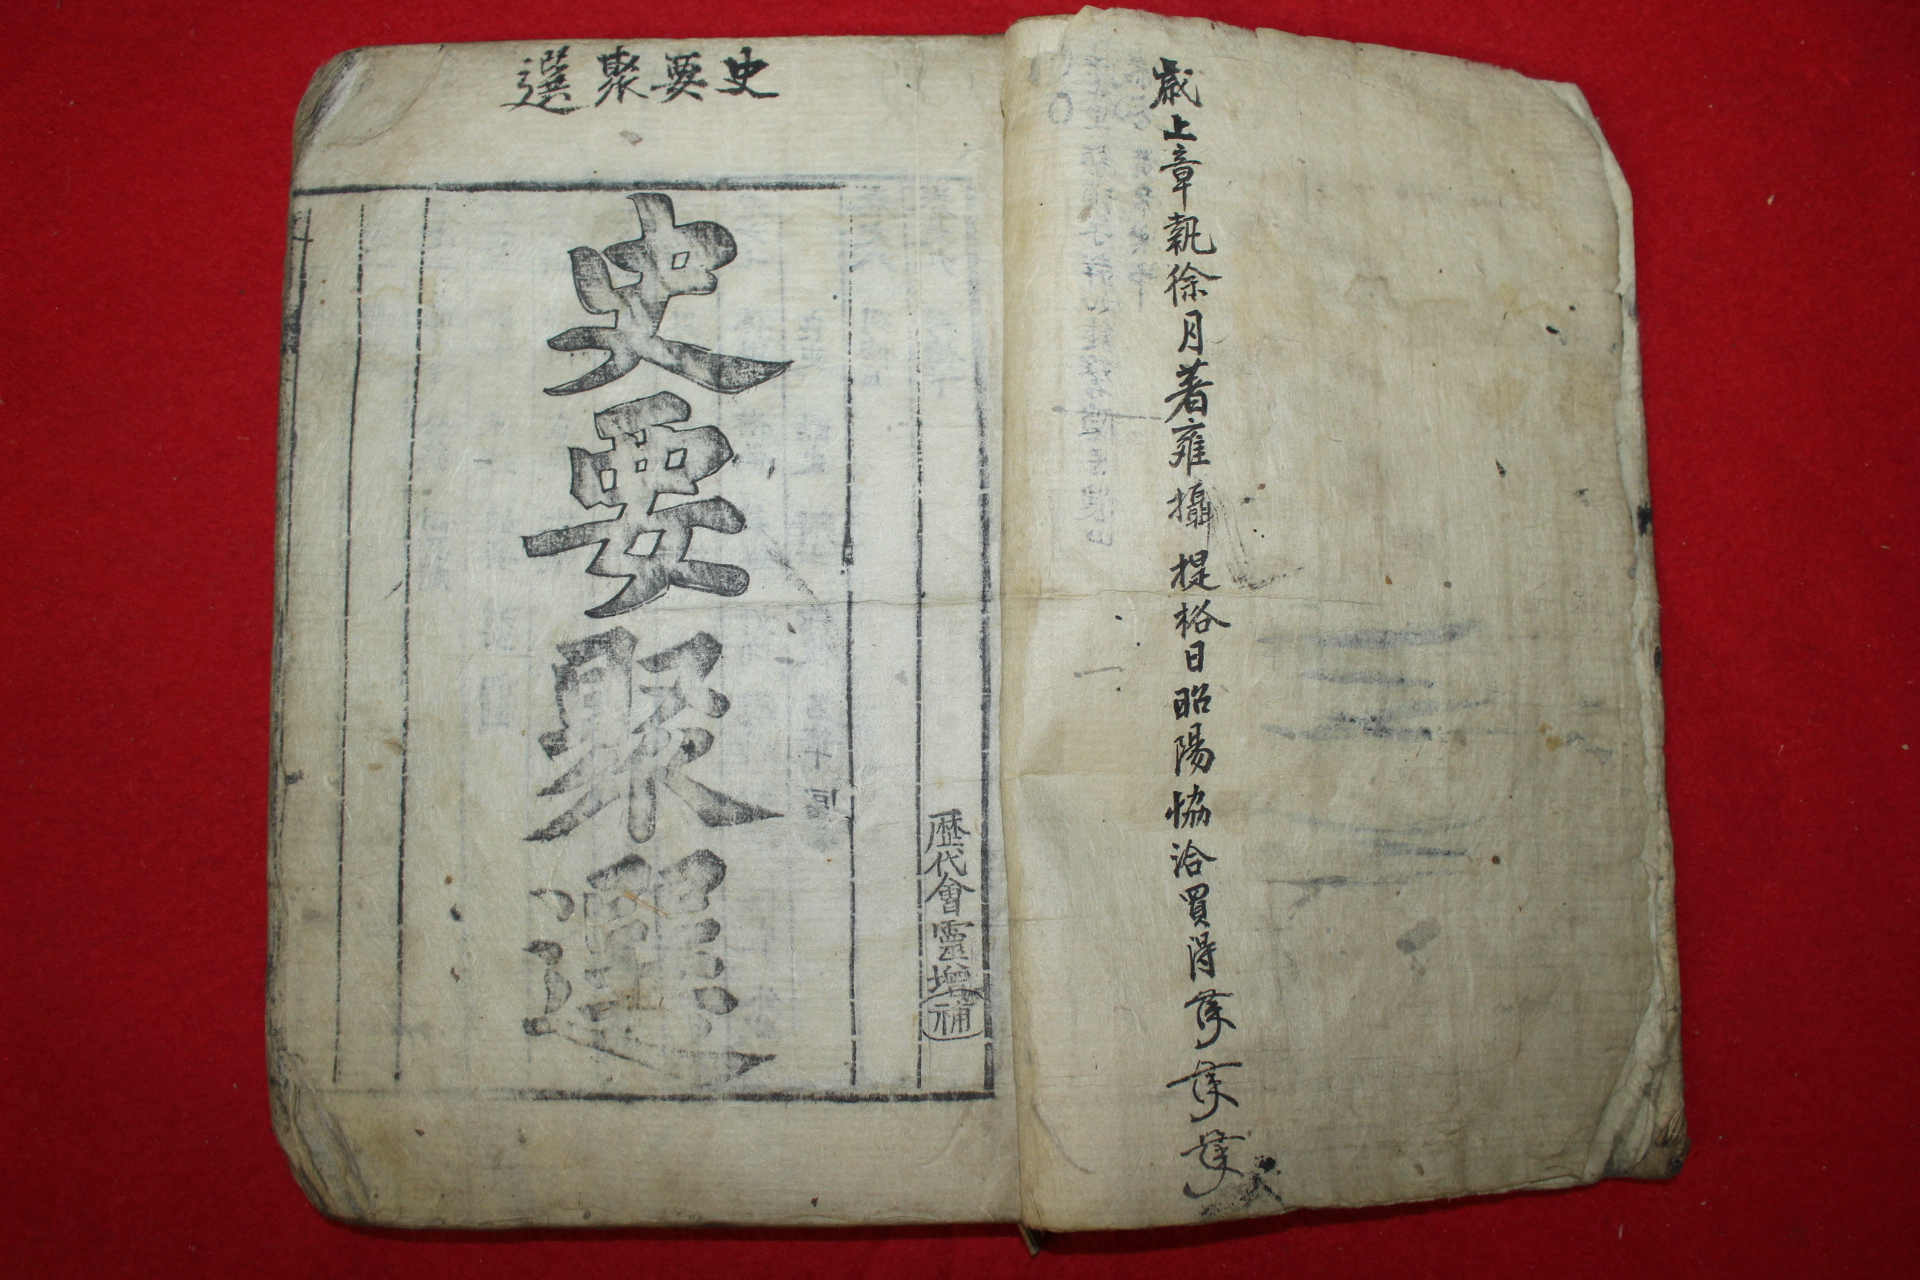 歲上章執徐月著雍攝提格日昭陽協洽買得
史要聚選
歷代會靈增補
史要聚選